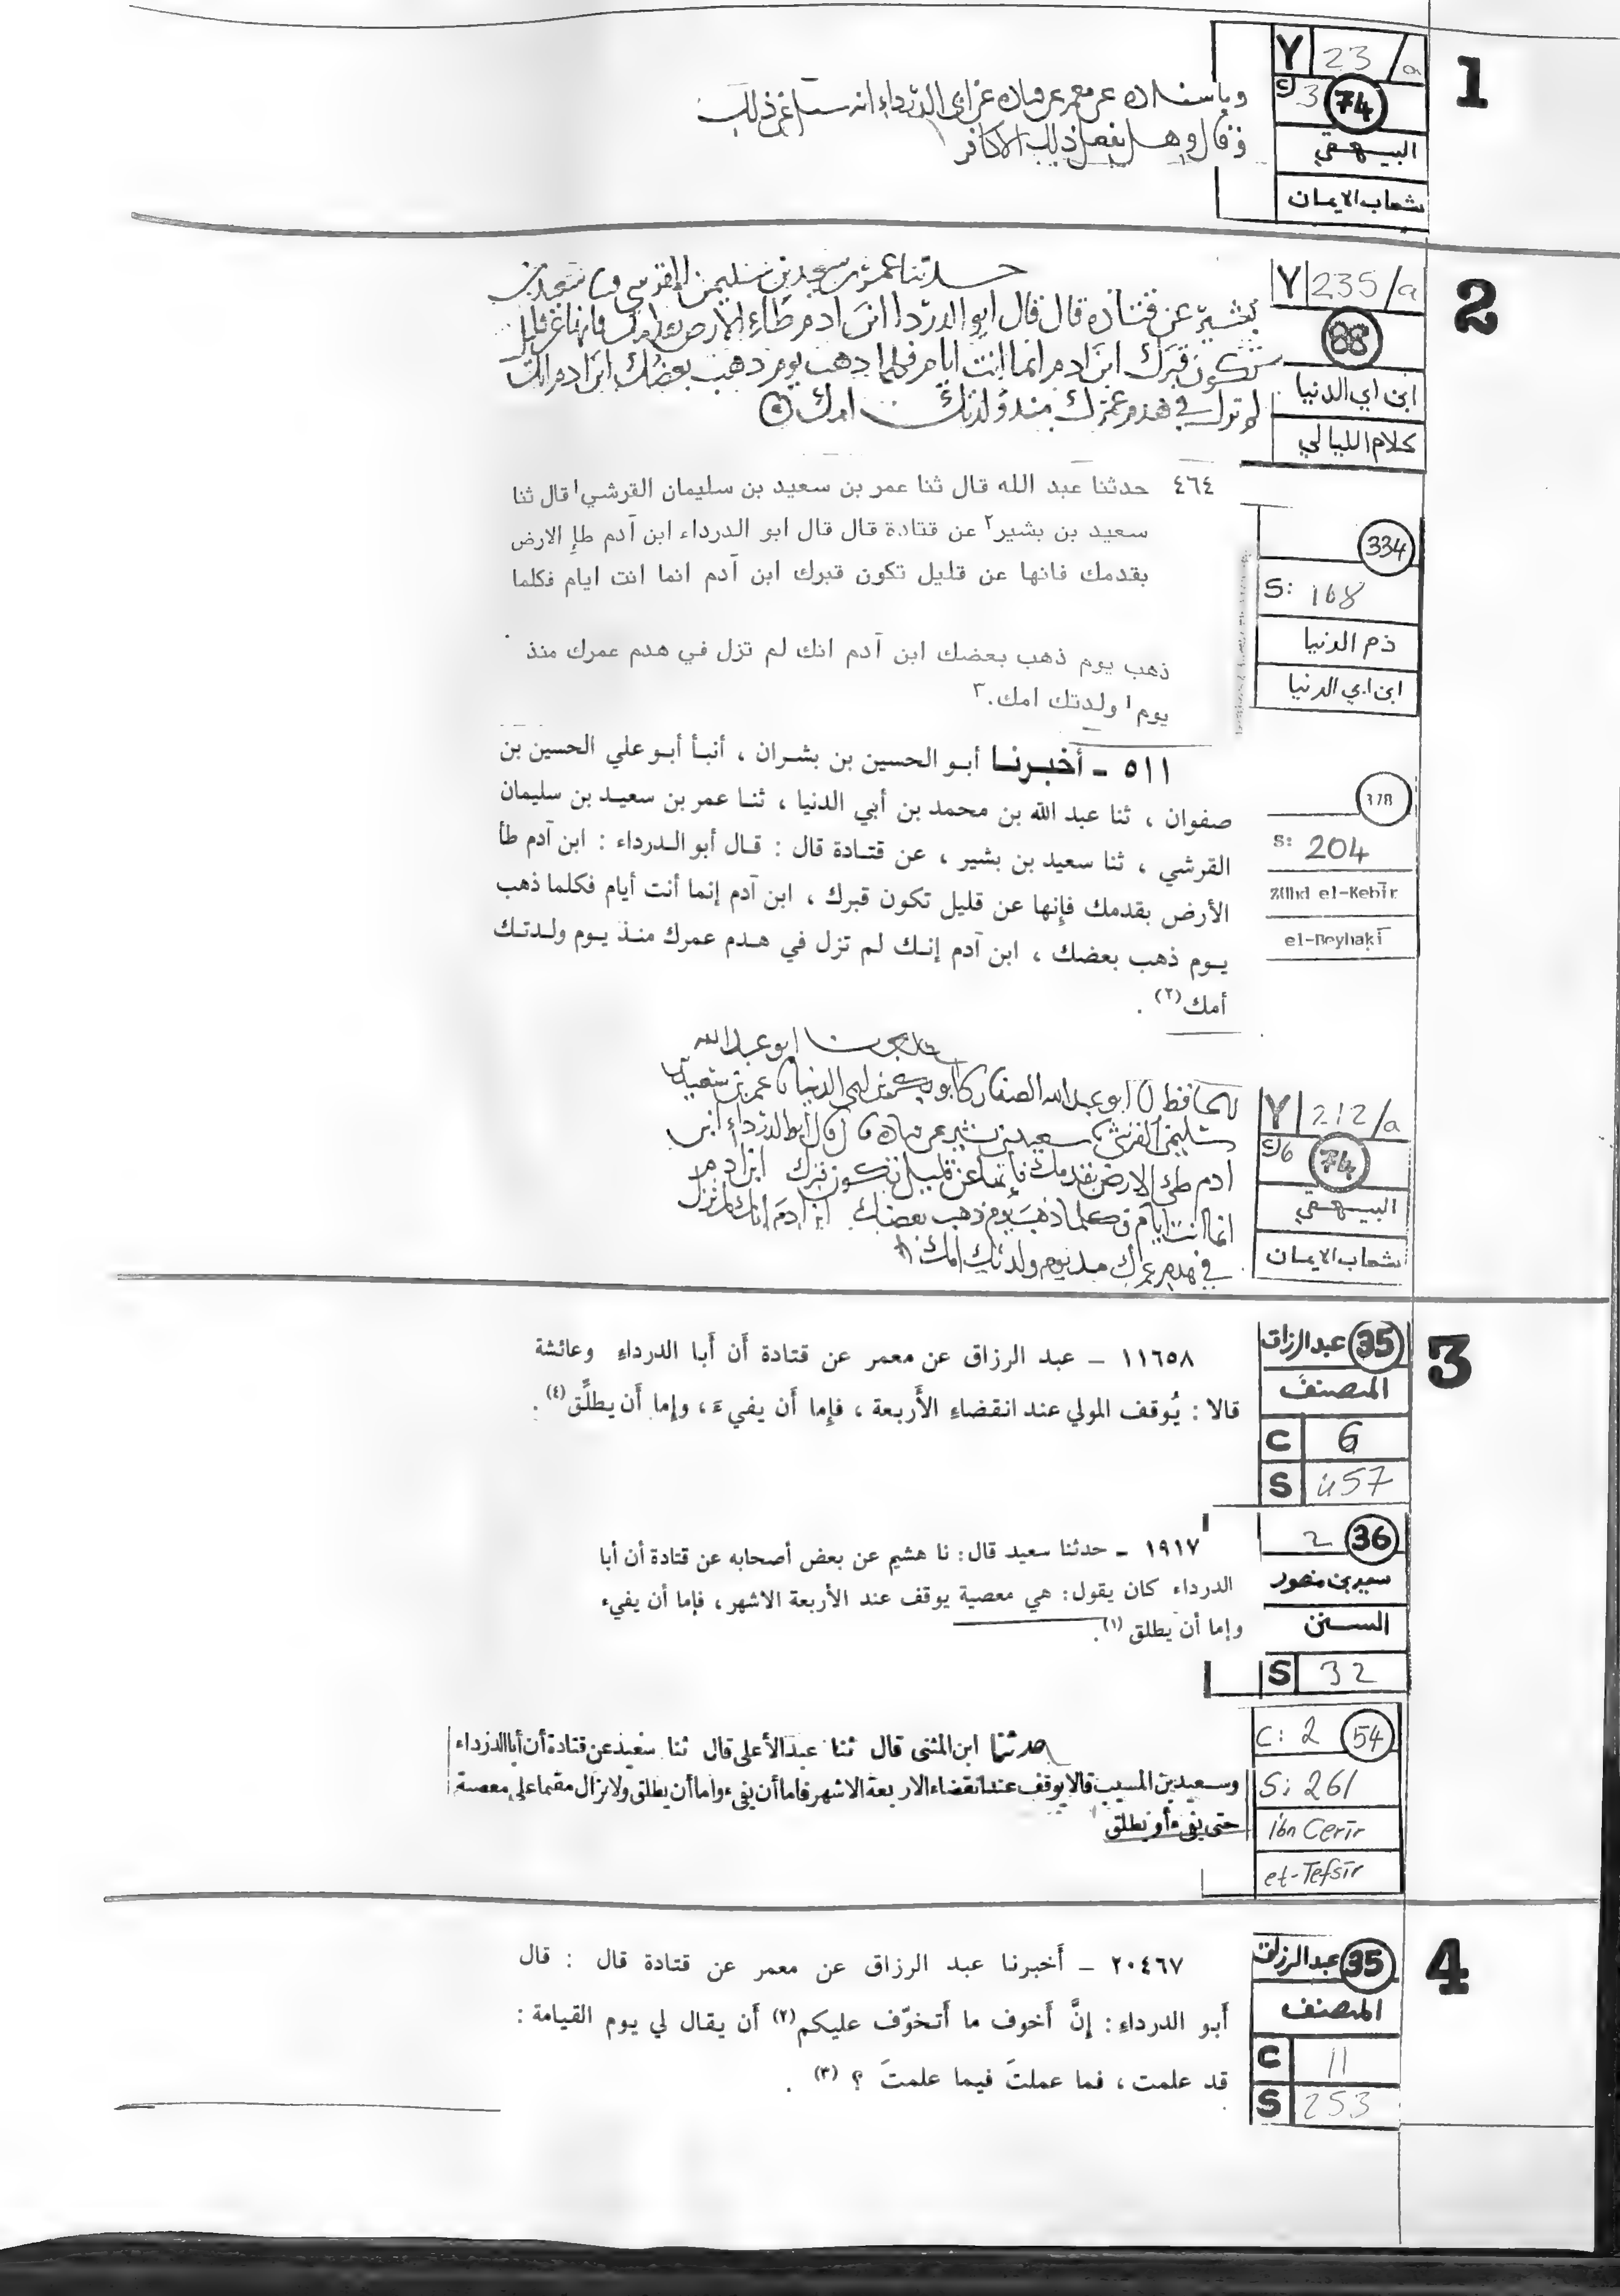 1
Y 23/a
C 3 74
البيهقي
شعاب الايمان
وباسناده عن معمر عن قتادة عن ابي الدرداء انه سئل عن ذلك
فقال وهل يفعل ذلك الا كافر
2
Y 235/a
88
ابن ابي الدنيا
كلام الليالي
حدثنا عمر بن سعيد بن سليمن القرشي سعيد بن
بشير عن قتادة قال قال ابو الدردا ابن ادم طاء الارض بقدمك فانها عن قليل
تكون قبرك ابن ادم انما انت ايام فكلما ذهب يوم ذهب بعضك ابن ادم انك
لم تزل في هدم عمرك منذ ولدتك امك
334
S: 168
ذم الدنيا
ابن ابي الدنيا
٤٦٤ حدثنا عبد الله قال ثنا عمر بن سعيد بن سليمان القرشي١ قال ثنا
سعيد بن بشير٢ عن قتادة قال قال ابو الدرداء ابن آدم طإ الارض
بقدمك فانها عن قليل تكون قبرك ابن آدم انما انت ايام فكلما
ذهب يوم ذهب بعضك ابن آدم انك لم تزل في هدم عمرك منذ
يوم١ ولدتك امك.٣
378
S: 204
Zühd el-Kebîr
el-Beyhaķî
٥١١ ـ أخبرنا أبو الحسين بن بشران ، أنبأ أبو علي الحسين بن
صفوان ، ثنا عبد الله بن محمد بن أبي الدنيا ، ثنا عمر بن سعيد بن سليمان
القرشي ، ثنا سعيد بن بشير ، عن قتادة قال : قال أبو الدرداء : ابن آدم طأ
الأرض بقدمك فإنها عن قليل تكون قبرك ، ابن آدم إنما أنت أيام فكلما ذهب
يوم ذهب بعضك ، ابن آدم إنك لم تزل في هدم عمرك منذ يوم ولدتك
أمك(٢) .
Y 212/a
C 6 74
البيهقي
شعاب الايمان
ابو عبد الله
الحافظ ابو عبد الله الصفار ابو بكر بن ابي الدنيا عمر بن سعيد بن
سليمن القرشي سعيد بن بشير عن قتادة قال قال ابو الدرداء ابن
ادم طئ الارض بقدمك فإنها عن قليل تكون قبرك ابن ادم
انما انت ايام فكلما ذهب يوم ذهب بعضك ابن ادم إنك لم تزل
في هدم عمرك مذ يوم ولدتك امك
3
35 عبد الرزاق
المصنف
C 6
S 457
١١٦٥٨ ـ عبد الرزاق عن معمر عن قتادة أن أبا الدرداءِ وعائشة
قالا : يُوقف المولي عند انقضاءِ الأربعة ، فإما أن يفيءَ ، وإما أن يطلِّق(٤) .
2 36
سعيد بن منصور
السنن
S 32
١٩١٧ ـ حدثنا سعيد قال: نا هشيم عن بعض أصحابه عن قتادة أن أبا
الدرداء كان يقول: هي معصية يوقف عند الأربعة الاشهر ، فإما أن يفيء
وإما أن يطلق (١).
C: 2 54
S: 261
Ibn Cerîr
et-Tefsîr
حدثنا ابن المثنى قال ثنا عبد الأعلى قال ثنا سعيد عن قتادة أن أبا الدرداء
وسعيد بن المسيب قالا يوقف عند انقضاء الاربعة الاشهر فاما أن يفيء واما أن يطلق ولا يزال مقيما على معصية
حتى يفيء أو يطلق
4
35 عبد الرزاق
المصنف
C 11
S 253
٢٠٤٦٧ ـ أَخبرنا عبد الرزاق عن معمر عن قتادة قال : قال
أَبو الدرداءِ : إنَّ أَخوف ما أَتخوّف عليكم(٢) أَن يقال لي يوم القيامة :
قد علمت ، فما عملتَ فيما علمتَ ؟ (٣) .